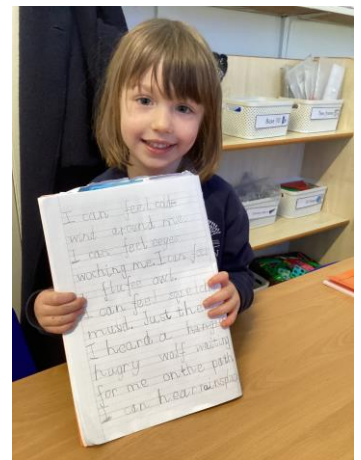 I can feel cold
wind around me
I can feel eyes
waching me. I can see
flufee owl.
I can feel
musd. Just then
I heard a
hugry wolf waiting
for me on the path
I can hear